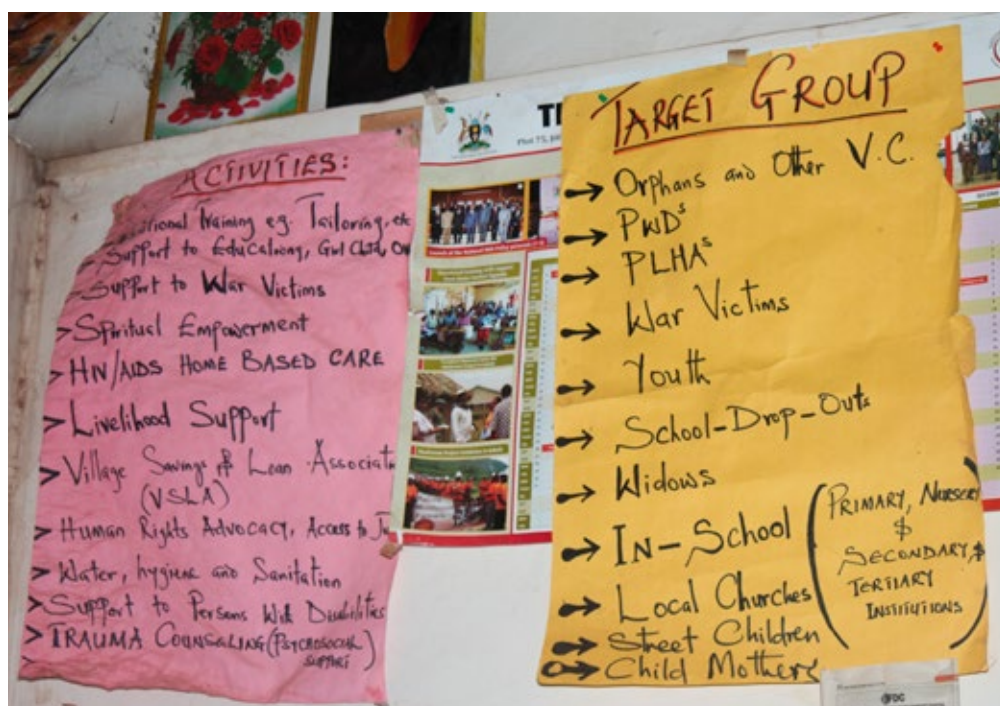 ACTIVITIES:
Training eg. Tailoring, etc
Support to Educations, Girl Child,
> Support to War Victims
> Spiritual Empowerment
> HIV/AIDS HOME BASED CARE
> Livelihood Support
> Village Savings & Loan Associati
(VSLA)
> Human Rights Advocacy, Access to Ju
> Water, hygiene and Sanitation
> Support to Persons With Disabilities
> TRAUMA COUNSELING (PSYCHOSOCIAL
SUPPORT)
>
TARGET GROUP
→ Orphans and Other V.C.
→ PWDs
→ PLHAs
→ War Victims
→ Youth
→ School-Drop-Outs
→ Widows
→ IN-School (PRIMARY, NURSERY
&
SECONDARY, &
TERTIARY
INSTITUTIONS)
→ Local Churches
→ Street Children
→ Child Mothers
Plot 75,
FDC